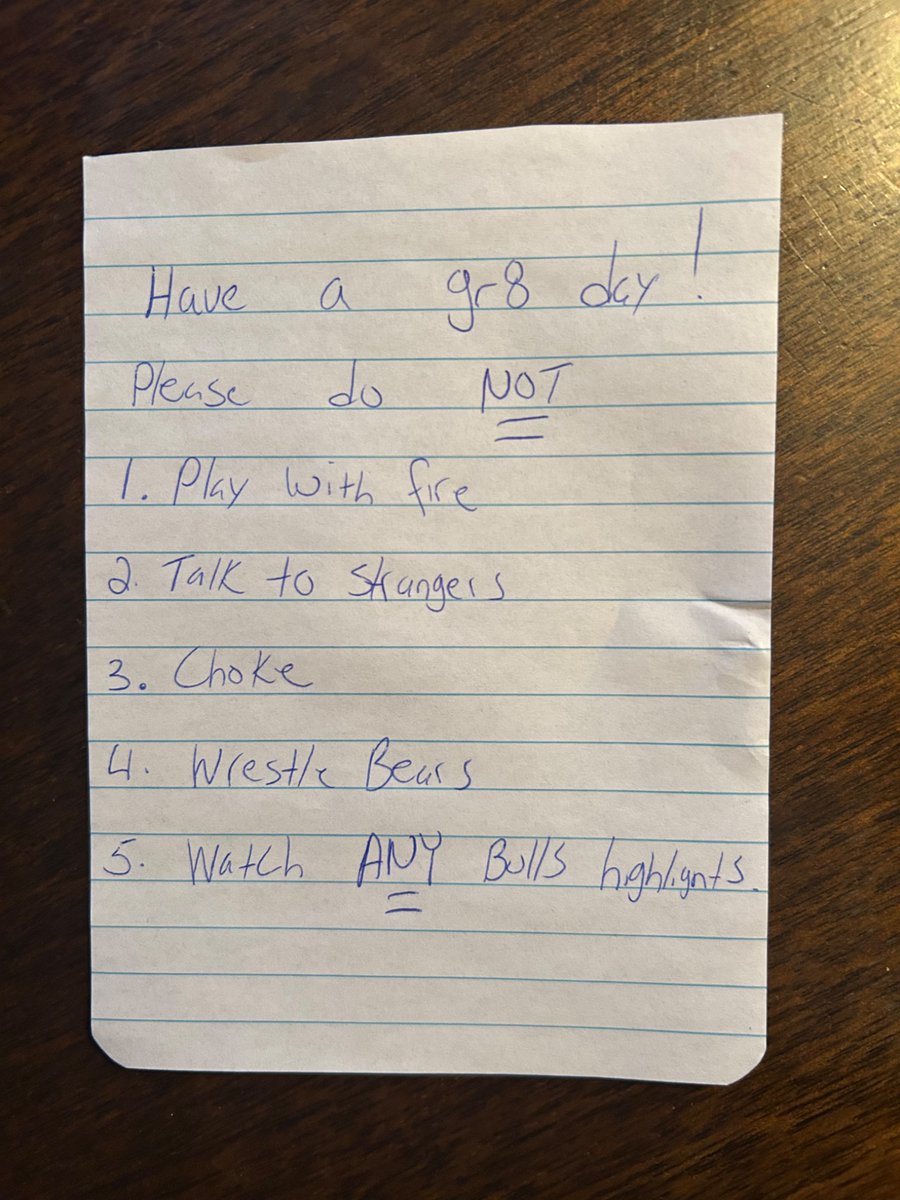 Have a gr8 day!
Please do NOT
1. Play with fire
2. Talk to Strangers
3. Choke
4. Wrestle Bears
5. Watch ANY Bulls highlights.